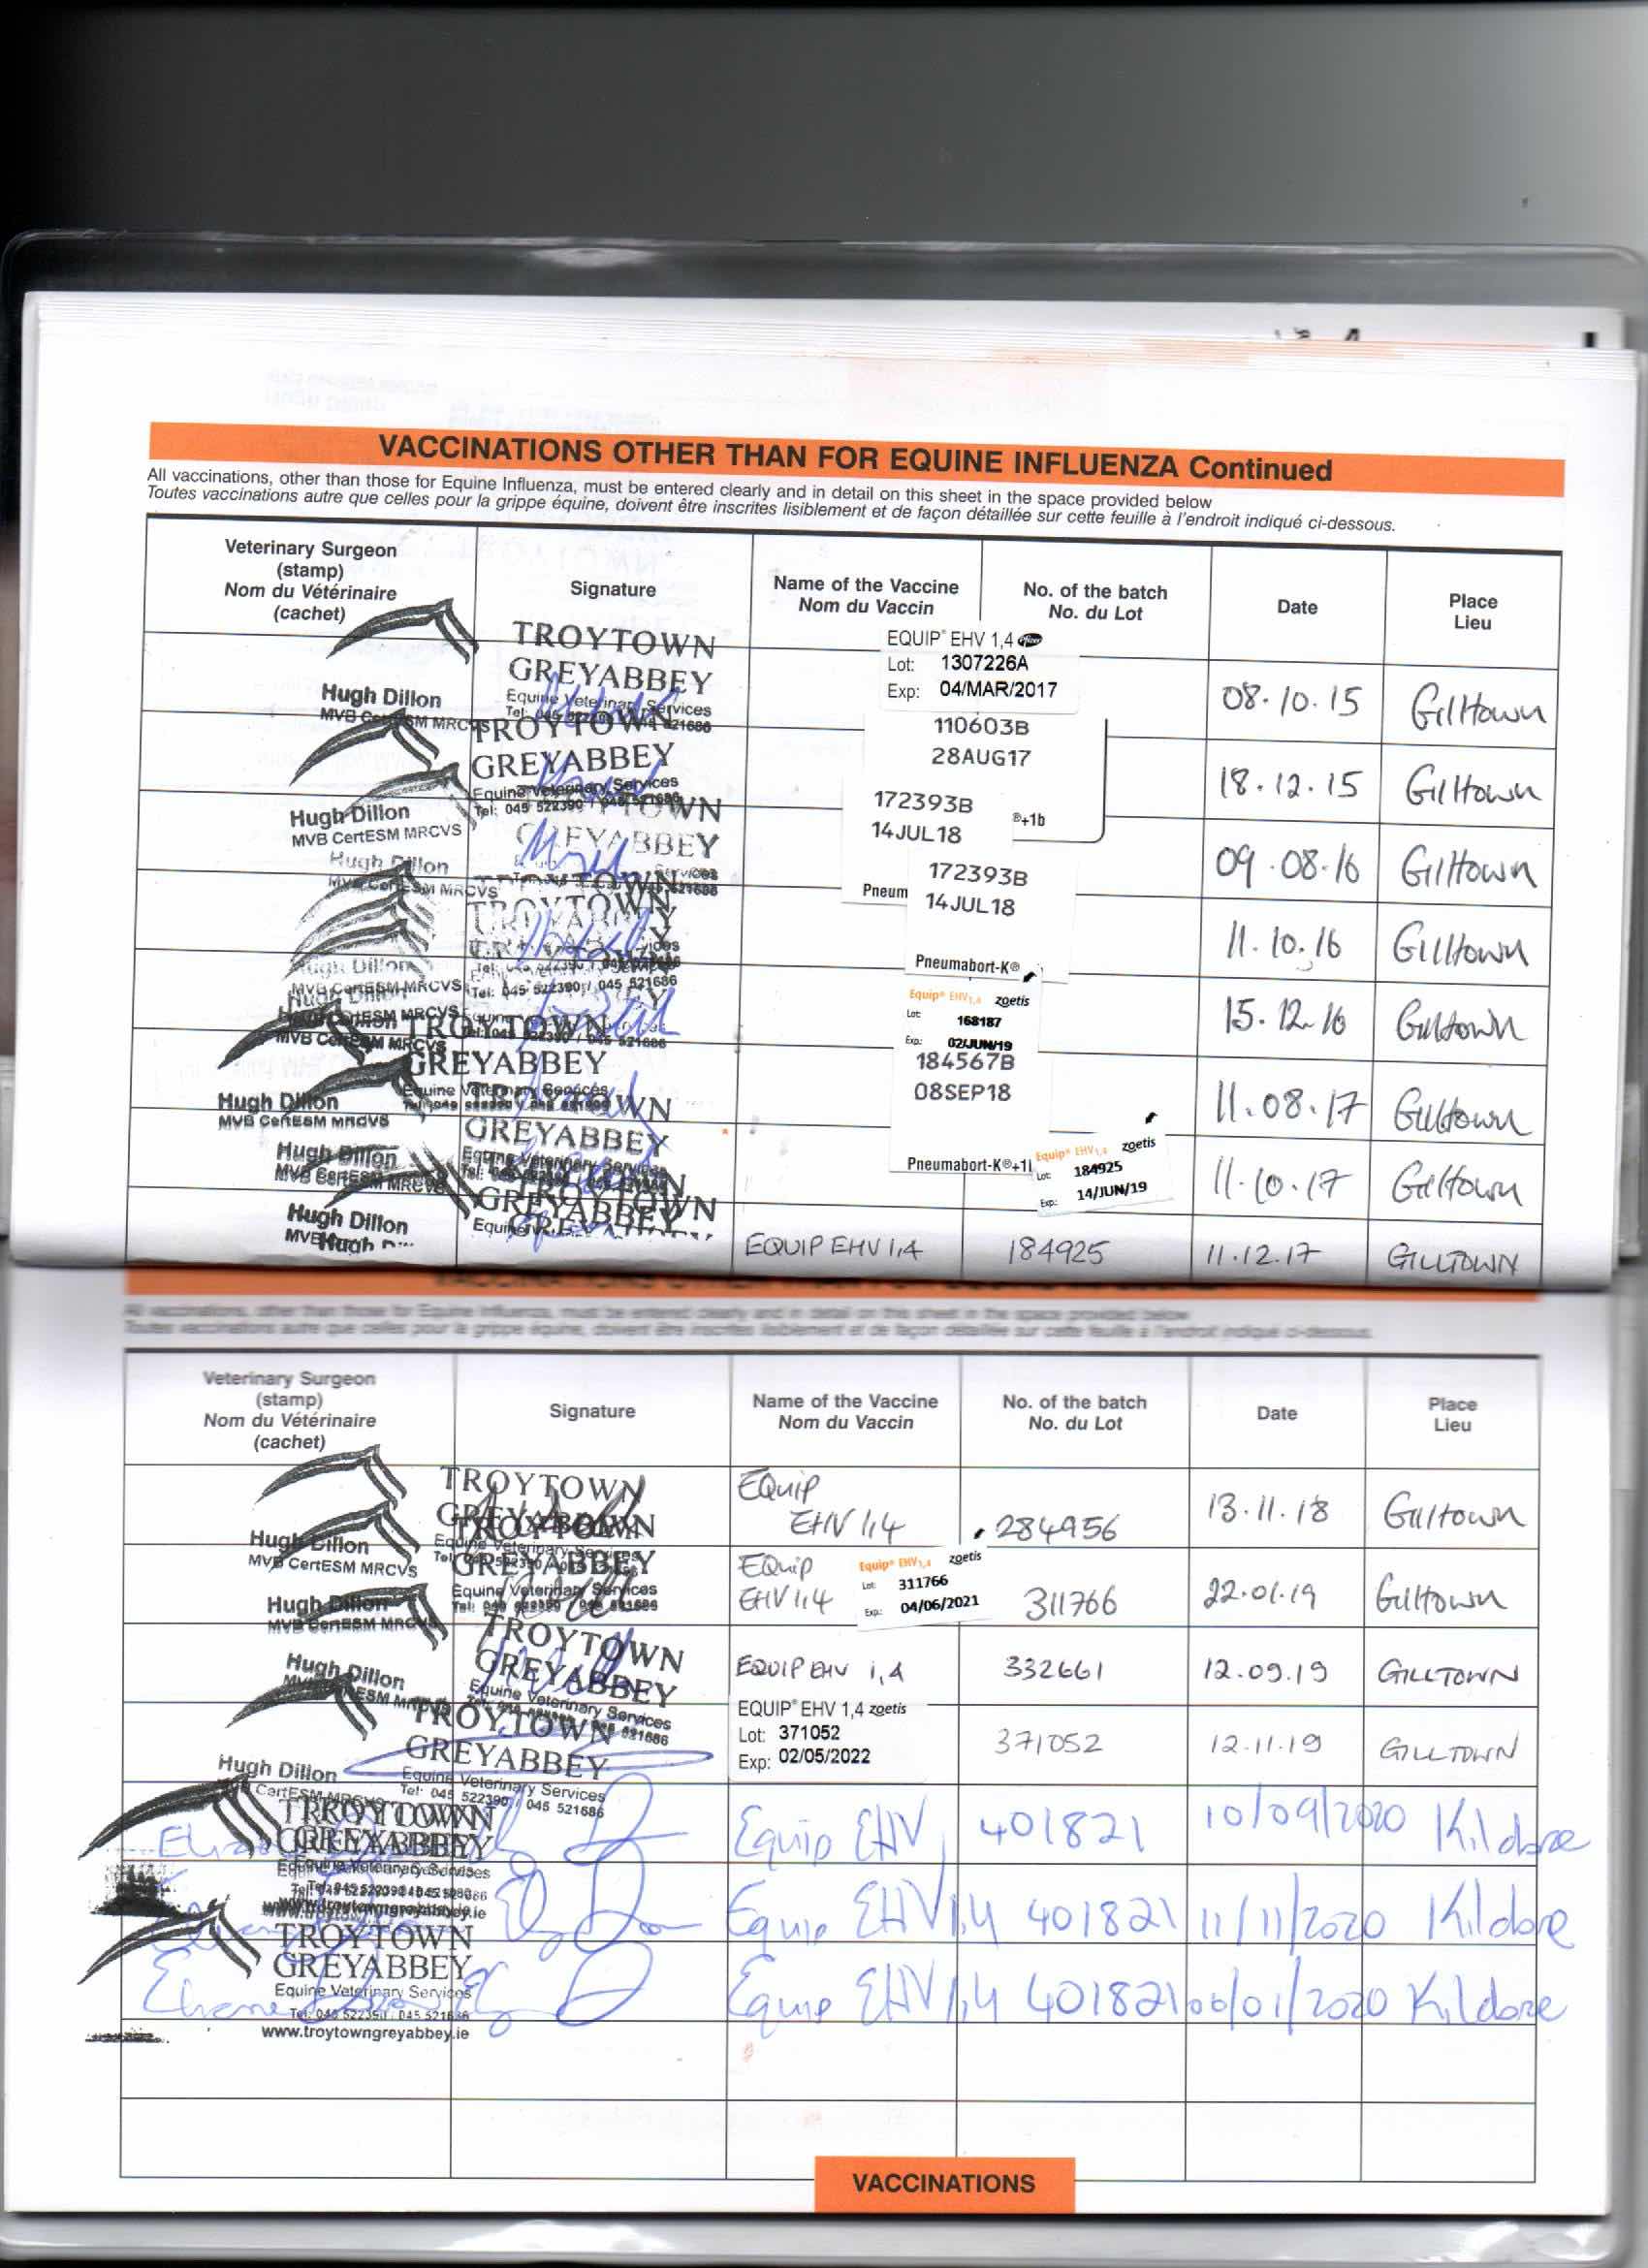 VACCINATIONS OTHER THAN FOR EQUINE INFLUENZA Continued
All vaccinations, other than those for Equine Influenza, must be entered clearly and in detail on this sheet in the space provided below
Toutes vaccinations autre que celles pour la grippe équine, doivent être inscrites lisiblement et de façon détaillée sur cette feuille à l'endroit indiqué ci-dessous.
Veterinary Surgeon
(stamp)
Nom du Vétérinaire
(cachet)
Signature
Name of the Vaccine
Nom du Vaccin
No. of the batch
No. du Lot
Date
Place
Lieu
Hugh Dillon
MVB CertESM MRCVS
TROYTOWN
GREYABBEY
Equine Veterinary Services
Tel: 045 522390 / 045 521686
EQUIP® EHV 1,4 Pfizer
Lot: 1307226A
Exp: 04/MAR/2017
08.10.15
Gilltown
Hugh Dillon
MVB CertESM MRCVS
TROYTOWN
GREYABBEY
Equine Veterinary Services
Tel: 045 522390 / 045 521686
110603B
28AUG17
®+1b
18.12.15
Gilltown
Hugh Dillon
MVB CertESM MRCVS
TOWN
GREYABBEY
172393B
14JUL18
Pneum
09.08.16
Gilltown
Hugh Dillon
MVB CertESM MRCVS
TROYTOWN
172393B
14JUL18
Pneumabort-K®
11.10.16
Gilltown
Hugh Dillon
Tel: 045 522390 / 045 521686
Equip® EHV1,4 zoetis
Lot: 168187
Exp: 02/JUN/19
15.12.16
Gilltown
Hugh Dillon
MVB CertESM MRCVS
TROYTOWN
GREYABBEY
Equine Veterinary Services
184567B
08SEP18
Pneumabort-K®+1
11.08.17
Gilltown
Hugh Dillon
MVB CertESM MRCVS
GREYABBEY
Equine Veterinary Services
Equip® EHV1,4 zoetis
Lot: 184925
Exp: 14/JUN/19
11.10.17
Gilltown
Hugh Dillon
GREYABBEY
EQUIP EHV 1,4
184925
11.12.17
GILLTOWN
All vaccinations, other than those for Equine Influenza, must be entered clearly and in detail on this sheet in the space provided below
Toutes vaccinations autre que celles pour la grippe équine, doivent être inscrites lisiblement et de façon détaillée sur cette feuille à l'endroit indiqué ci-dessous.
Veterinary Surgeon
(stamp)
Nom du Vétérinaire
(cachet)
Signature
Name of the Vaccine
Nom du Vaccin
No. of the batch
No. du Lot
Date
Place
Lieu
Hugh Dillon
MVB CertESM MRCVS
TROYTOWN
GREYABBEY
Equip
EHV 1,4
284956
13.11.18
Gilltown
Hugh Dillon
MVB CertESM MRCVS
TROYTOWN
GREYABBEY
Equine Veterinary Services
Equip
EHV 1,4
Equip® EHV1,4 zoetis
Lot: 311766
Exp: 04/06/2021
311766
22.01.19
Gilltown
Hugh Dillon
TROYTOWN
GREYABBEY
Equine Veterinary Services
EQUIP EHV 1,4
332661
12.09.19
GILLTOWN
Hugh Dillon
CertESM MRCVS
TROYTOWN
GREYABBEY
Equine Veterinary Services
Tel: 045 522390 / 045 521686
EQUIP® EHV 1,4 zoetis
Lot: 371052
Exp: 02/05/2022
371052
12.11.19
GILLTOWN
TROYTOWN
GREYABBEY
Equip EHV
401821
10/09/2020
Kildare
www.troytowngreyabbey.ie
Equip EHV1,4
401821
11/11/2020
Kildare
TROYTOWN
GREYABBEY
Equine Veterinary Services
www.troytowngreyabbey.ie
Equip EHV1,4
401821
06/01/2020
Kildare
VACCINATIONS